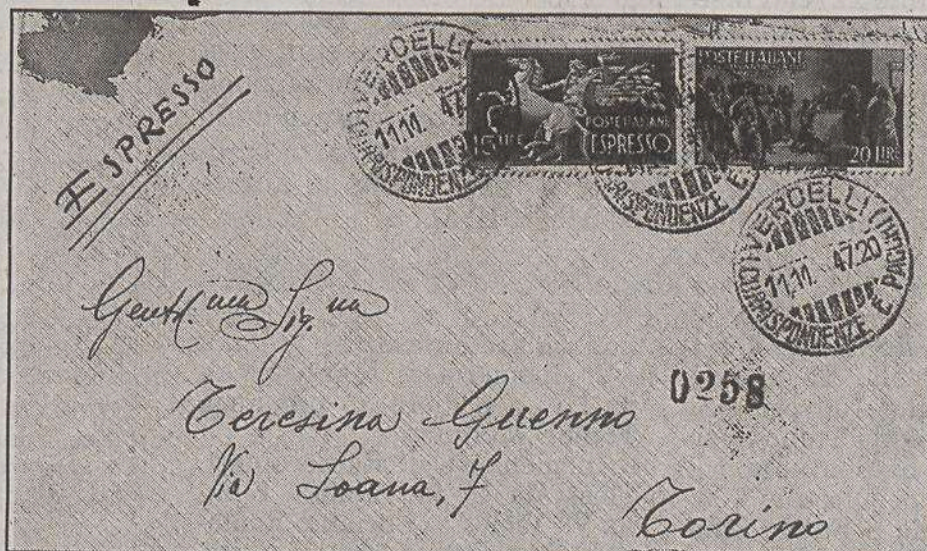 ESPRESSO
VERCELLI
11.11. 47
CORRISPONDENZE
15 LIRE
POSTE ITALIANE
ESPRESSO
POSTE ITALIANE
20 LIRE
CORRISPONDENZE E
VERCELLI
11.11. 47.20
CORRISPONDENZE E PACCHI
Gentil.ma Sig.na
0258
Teresina Guenno
Via Loana, 7
Torino